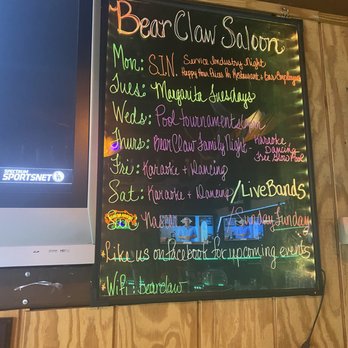 Bear Claw Saloon
Mon: S.I.N. Service Industry Night
Happy Hour Prices for Restaurant & Bar Employees
Tues: Margarita Tuesdays
Weds: Pool tournament
Thurs: Bear Claw Family Night - Karaoke
Dancing
Free Pool
Fri: Karaoke + Dancing
Sat: Karaoke + Dancing / Live Bands
/Sunday Funday
*Like us on Facebook for upcoming events
*Wifi: bearclaw
SPECTRUM
SPORTSNET